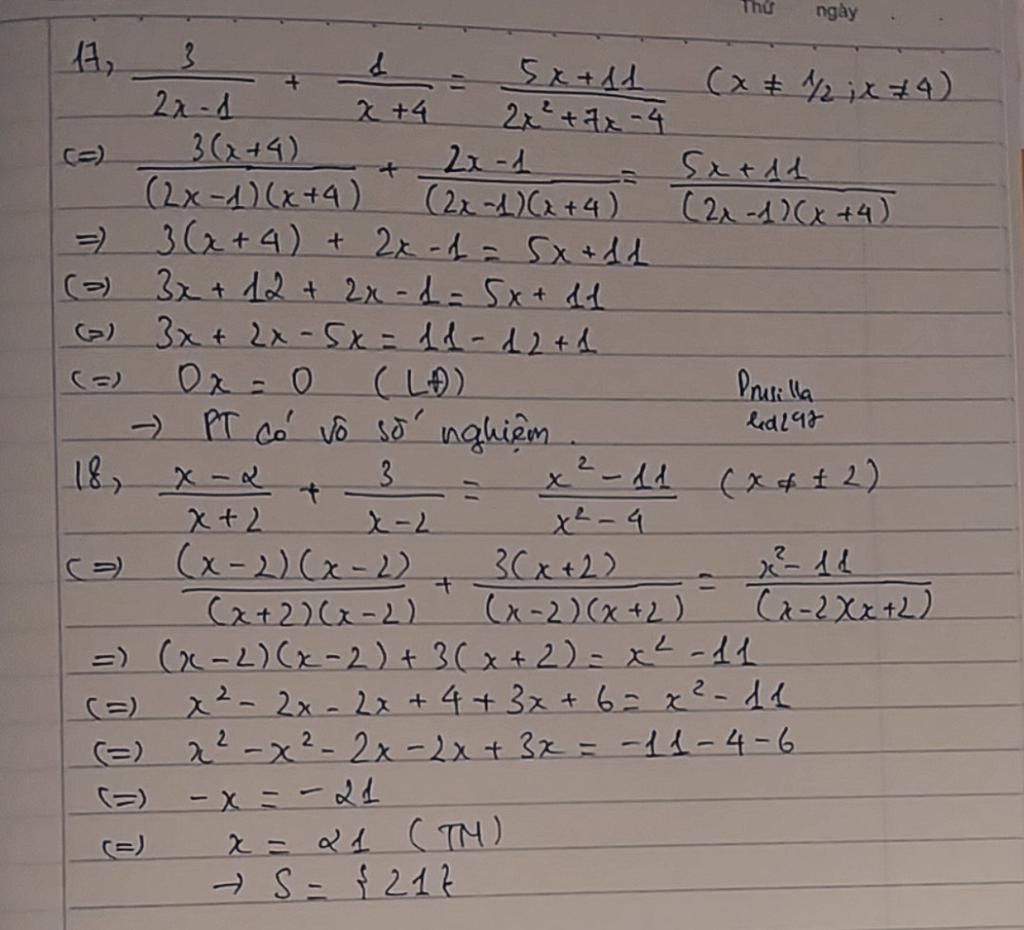 Thứ ngày . .
17, 3/(2x-1) + 1/(x+4) = (5x+11)/(2x²+7x-4) (x ≠ 1/2; x ≠ 4)
(=) 3(x+4)/((2x-1)(x+4)) + (2x-1)/((2x-1)(x+4)) = (5x+11)/((2x-1)(x+4))
=) 3(x+4) + 2x-1 = 5x+11
(=) 3x + 12 + 2x - 1 = 5x + 11
(=) 3x + 2x - 5x = 11 - 12 + 1
(=) 0x = 0 (LĐ)
→ PT có vô số nghiệm.
18, (x-2)/(x+2) + 3/(x-2) = (x²-11)/(x²-4) (x ≠ ±2)
(=) (x-2)(x-2)/((x+2)(x-2)) + 3(x+2)/((x-2)(x+2)) = (x²-11)/((x-2)(x+2))
=) (x-2)(x-2) + 3(x+2) = x² - 11
(=) x² - 2x - 2x + 4 + 3x + 6 = x² - 11
(=) x² - x² - 2x - 2x + 3x = -11 - 4 - 6
(=) -x = -21
(=) x = 21 (TM)
→ S = {21}